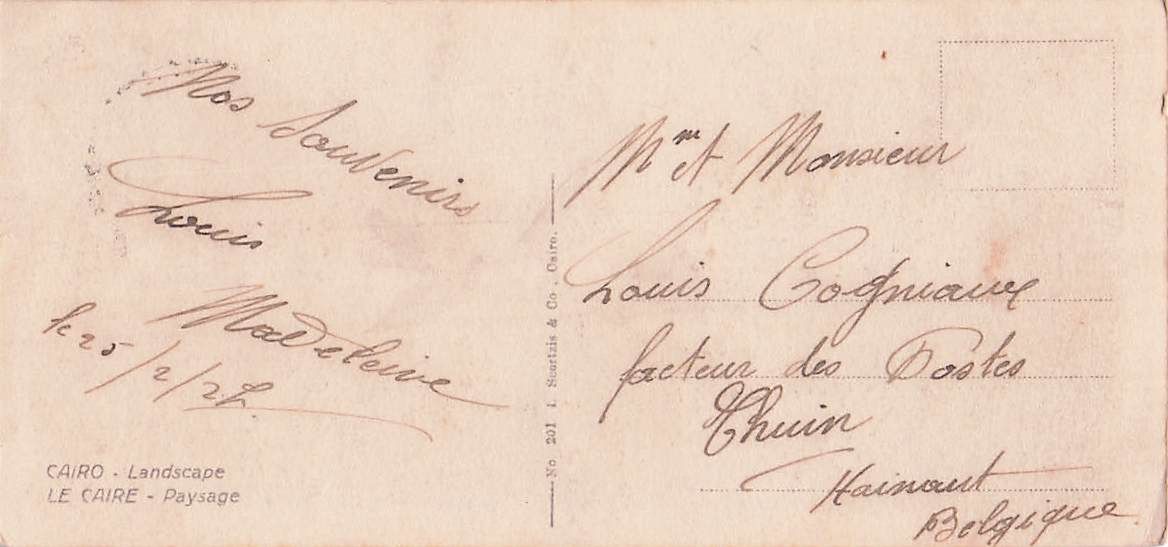 Nos Souvenirs
Louis
Madeleine
le 25/2/24.
CAIRO - Landscape
LE CAIRE - Paysage
No 201 I. Scortzis & Co. Cairo.
Mme et Monsieur
Louis Cogniaux
facteur des Postes
Thuin
Hainaut
Belgique.